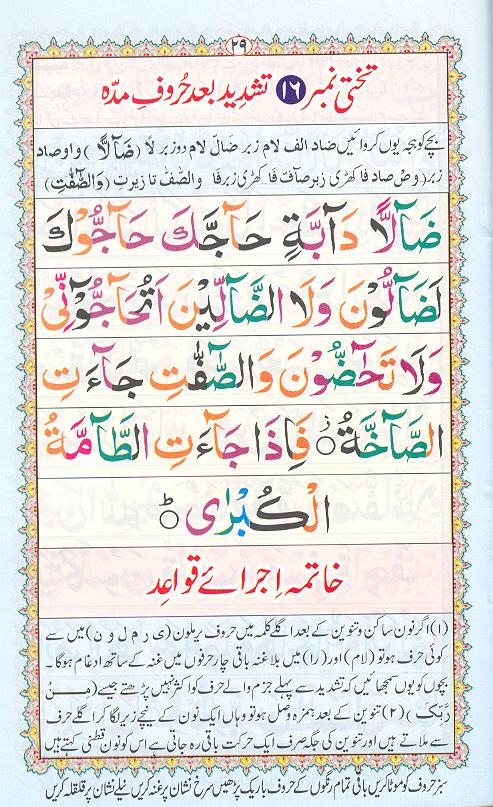 ۲۹
تختی نمبر ۱۶ تشدید بعد حُروفِ مدّہ
بچے کو ہجہ یوں کروائیں ضاد الف لام زبر ضَآلّ لام دو زبر لاً (ضَآلًّا) واو صاد
زبر (وصْ صاد فا کھڑی زبر صآفّ فا کھڑی زبر فا والصّٰف تا زیرتِ (وَالصّٰٓفّٰتِ)
ضَآلًّا دَآبَّةٍ حَآجَّكَ حَآجُّوْكَ
لَضَآلُّوْنَ وَلَا الضَّآلِّيْنَ اَتُحَآجُّوْٓنِّيْ
وَلَا تَحٰٓضُّوْنَ وَالصّٰٓفّٰتِ جَآءَتِ
الصَّآخَّةُ ۝ فَاِذَا جَآءَتِ الطَّآمَّةُ
الْكُبْرٰى ۝
خاتمہ اِجرائے قواعِد
(۱) اگر نون ساکن و تنوین کے بعد اگلے کلمہ میں حروف یرملون (ی ر م ل و ن) میں سے
کوئی حرف ہو تو (لام) اور (را) میں بلا غنہ باقی چار حرفوں میں غنہ کے ساتھ ادغام ہوگا۔
بچوں کو یوں سمجھائیں کہ تشدید سے پہلے جزم والے حرف کو اکثر نہیں پڑھتے جیسے (مِنْ
رَّبِّكَ) (۲) تنوین کے بعد ہمزہ وصل ہو تو وہاں ایک نون کے نیچے زیر لگا کر اگلے حرف
سے ملاتے ہیں اور تنوین کی جگہ صرف ایک حرکت باقی رہ جاتی ہے اس کو نون قطنی کہتے ہیں
سبز حروف کو موٹا کریں باقی تمام رنگوں کے حروف باریک پڑھیں سرخ نشان پر غنہ کریں نیلے نشان پر قلقلہ کریں